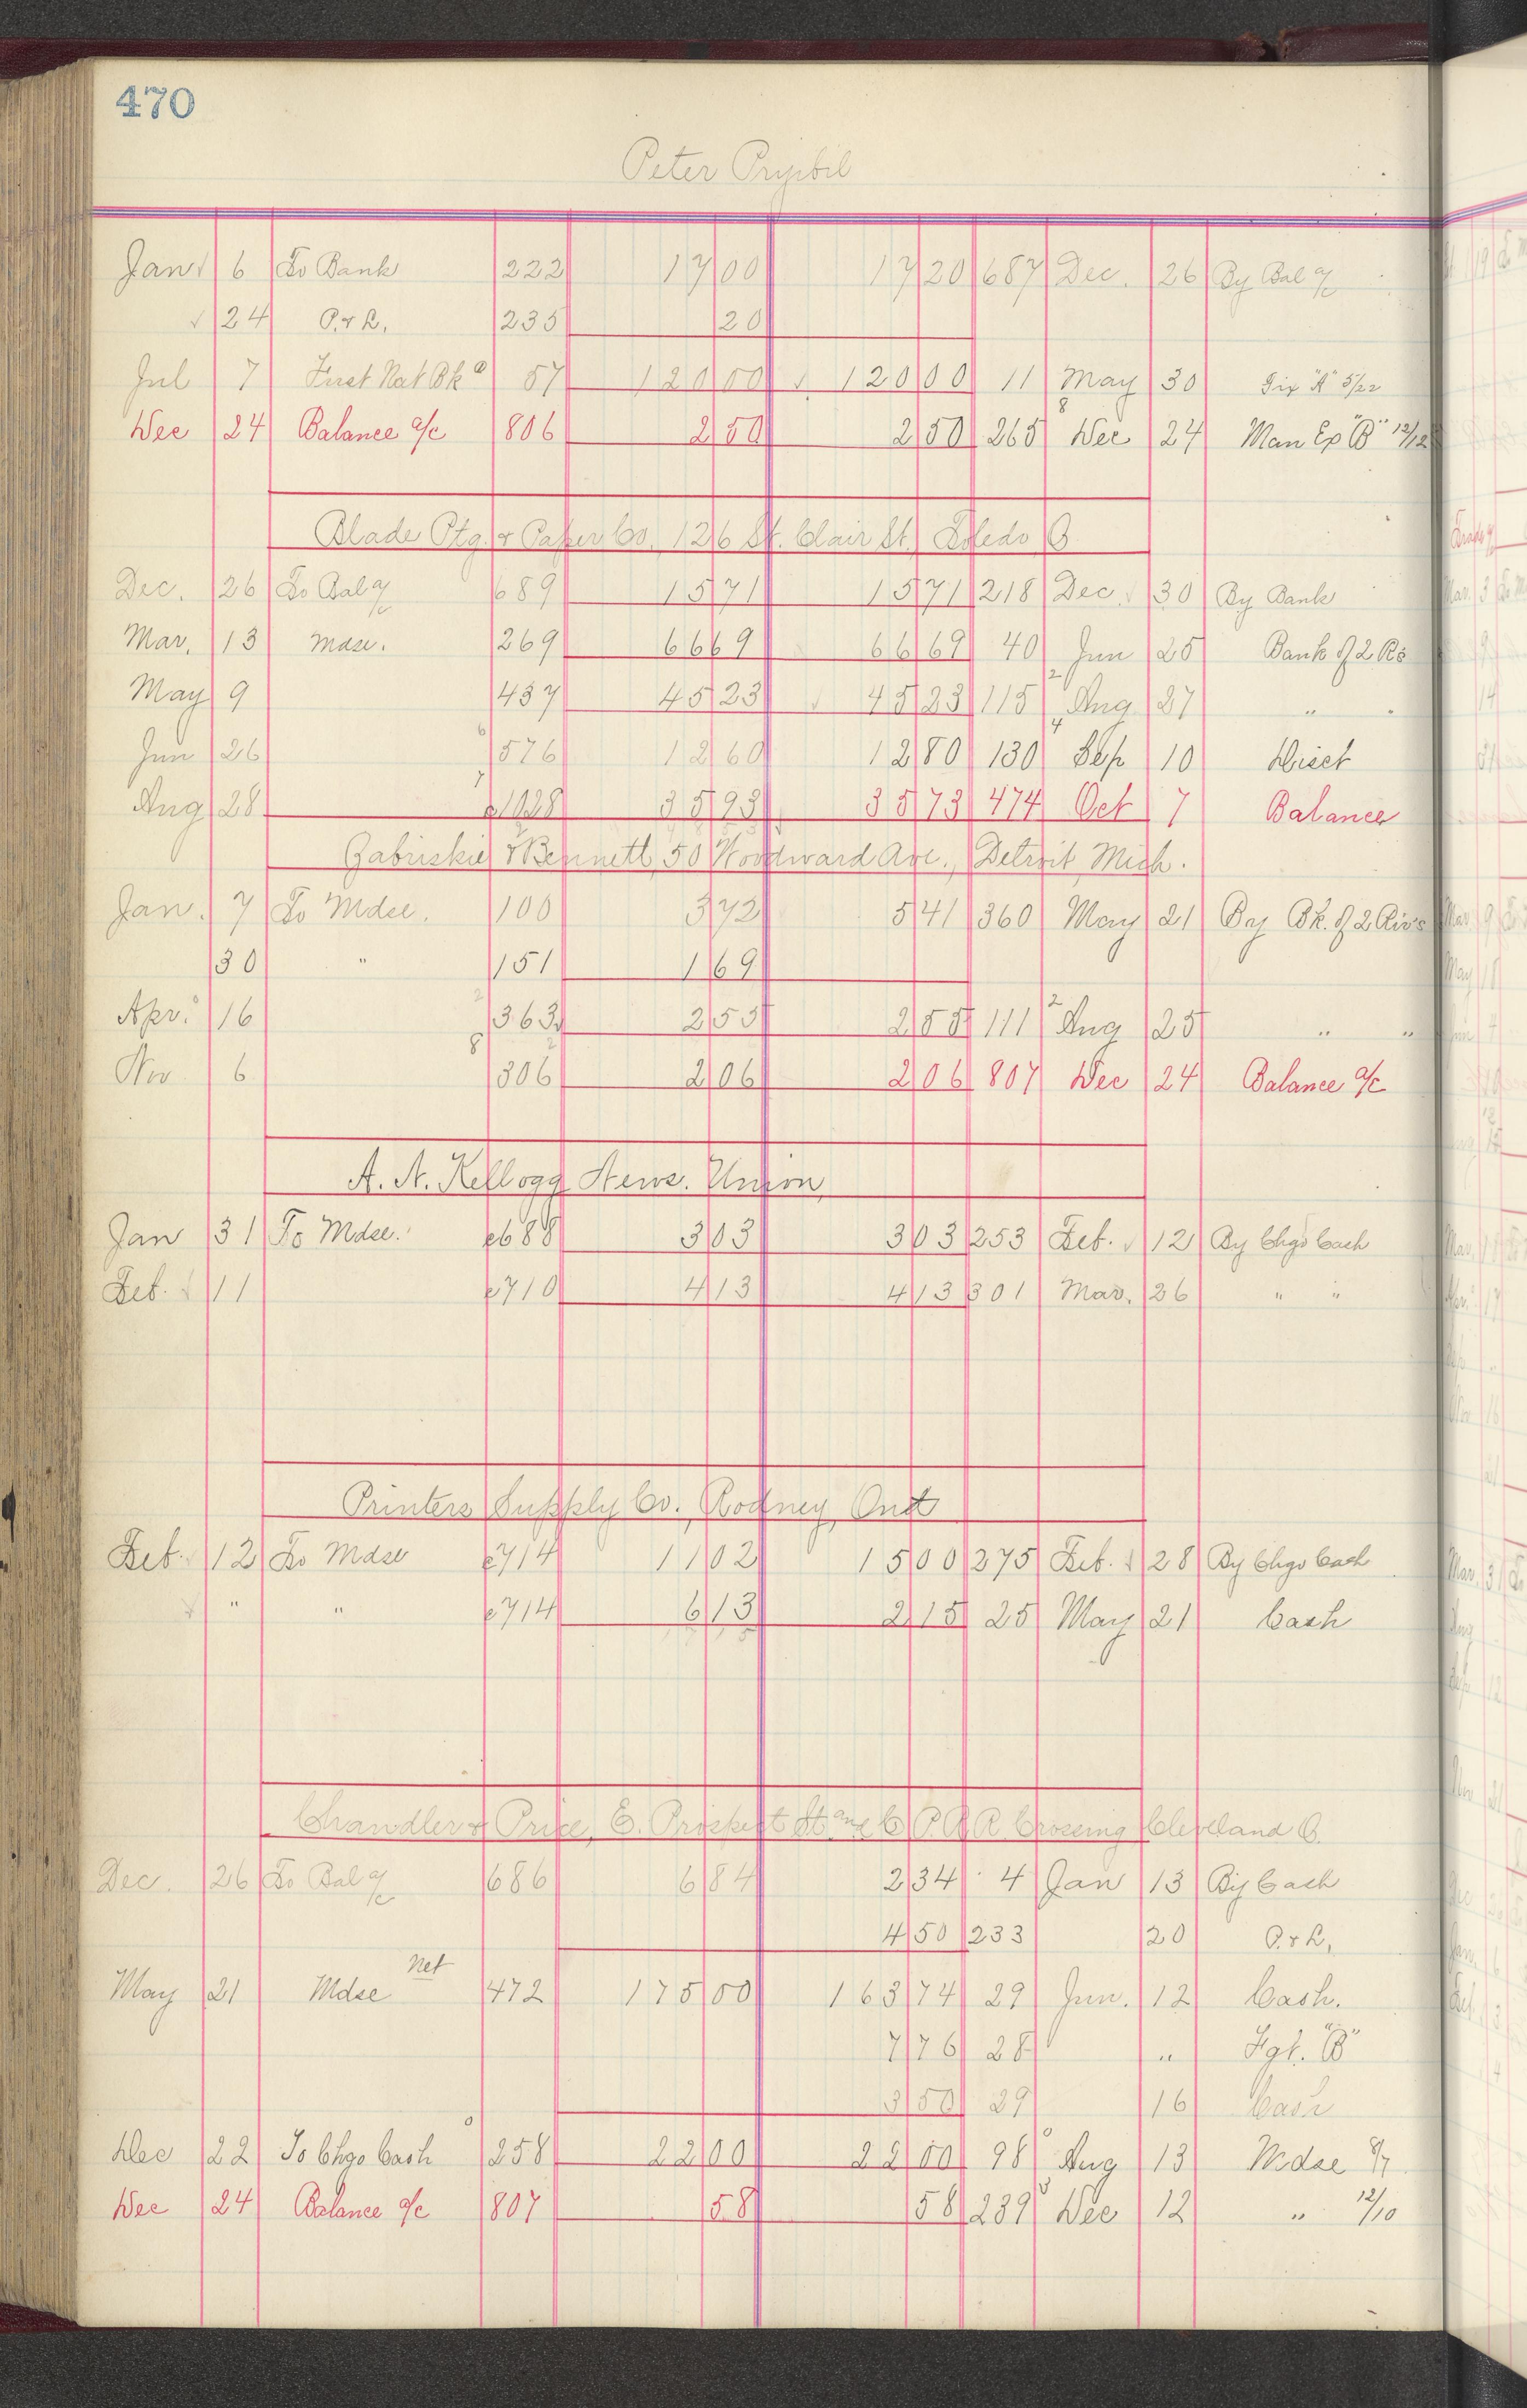 470
Peter Pryibil
Jan 6 To Bank 222 17 00 17 20 687 Dec. 26 By Bal a/c
24 P. & L. 235 20
Jul 7 First Nat Bk 57 120 00 120 00 11 May 30 Fix "A" 5/22
Dec 24 Balance a/c 806 2 50 2 50 265 8 Dec 24 Man Ex "B" 12/12
Blade Ptg. & Paper Co. 126 St. Clair St. Toledo O.
Dec. 26 To Bal a/c 689 15 71 15 71 218 Dec 30 By Bank
Mar. 13 Mdse. 269 66 69 66 69 40 Jun 25 Bank of 2 Rs
May 9 437 45 23 45 23 115 2 Aug 27 " "
Jun 26 6 576 12 60 12 80 130 4 Sep 10 Disct
Aug 28 7 1028 35 93 35 73 474 Oct 7 Balance
Zabriskie & Bennett, 50 Woodward Ave., Detroit, Mich.
Jan. 7 To Mdse. 100 3 72 5 41 360 May 21 By Bk. of 2 Rivs
30 " 151 1 69
Apr. 16 363 2 55 2 55 111 2 Aug 25 " "
Nov 6 8 306 2 06 2 06 807 Dec 24 Balance a/c
A. N. Kellogg News. Union
Jan 31 To Mdse. c688 3 03 3 03 253 Feb. 12 By Chgo Cash
Feb. 11 c710 4 13 4 13 301 Mar. 26 " "
Printers Supply Co., Rodney, Ont
Feb. 12 To Mdse c714 11 02 15 00 275 Feb. 28 By Chgo Cash
" " c714 6 13 2 15 25 May 21 Cash
Chandler & Price, E. Prospect St. and C P. R R Crossing Cleveland O.
Dec. 26 To Bal a/c 686 6 84 2 34 4 Jan 13 By Cash
4 50 233 20 P. & L.
May 21 Mdse Net 472 175 00 163 74 29 Jun. 12 Cash.
7 76 28 " Fgt. "B"
3 50 29 16 Cash
Dec 22 To Chgo Cash 258 22 00 22 00 98 Aug 13 Mdse 8/7
Dec 24 Balance a/c 807 58 58 239 Dec 12 " 12/10